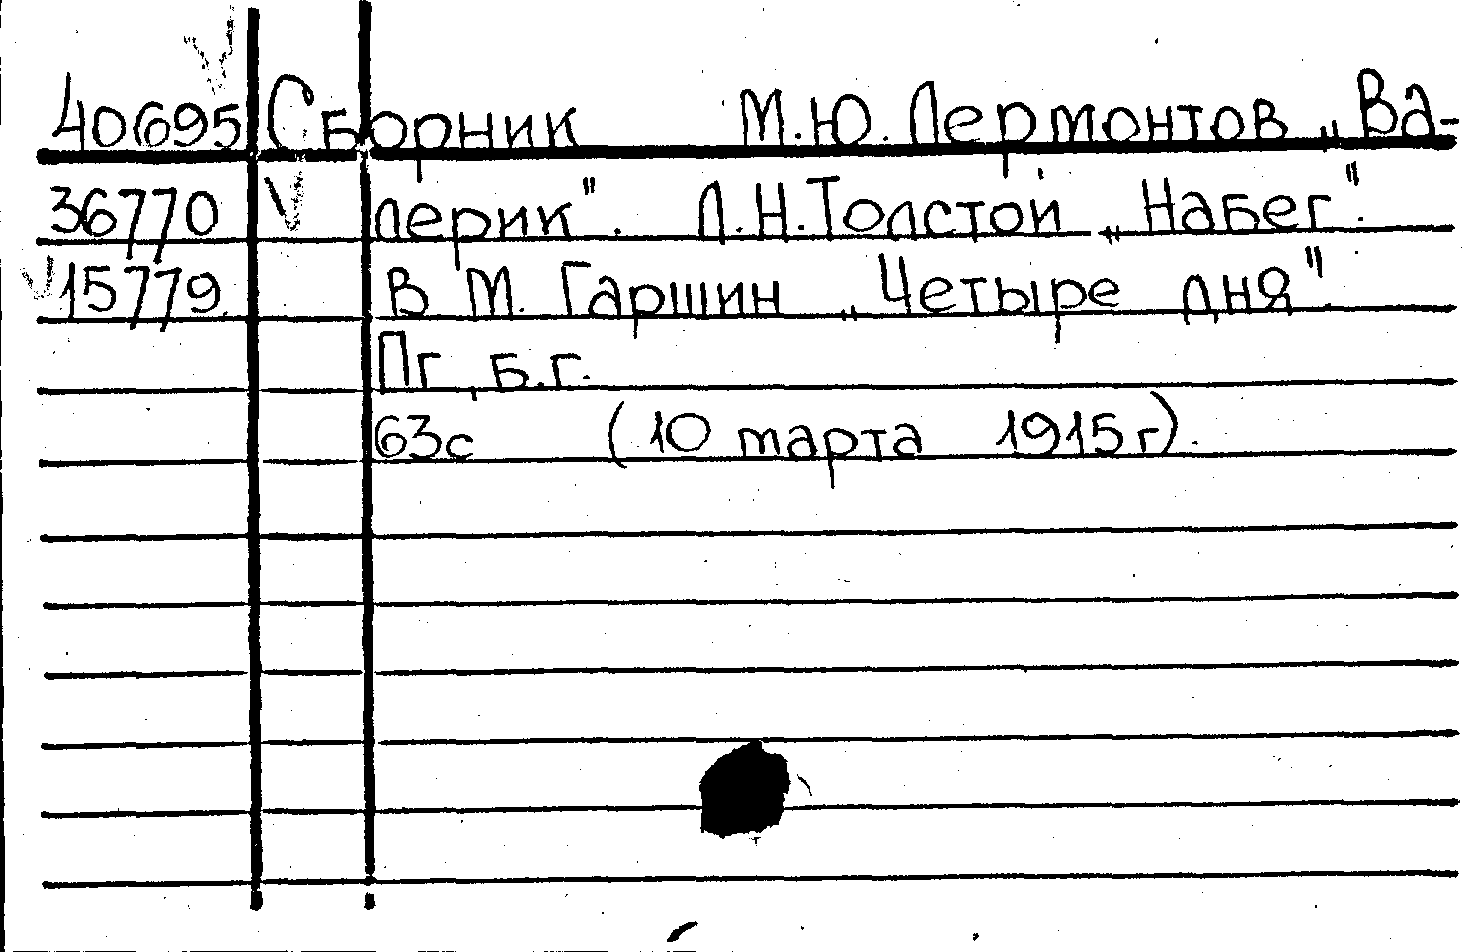 40695 Сборник М.Ю. Лермонтов „Ва-
36770 лерик". Л.Н.Толстой „Набег".
15779 В М. Гаршин „Четыре дня".
Пг, б.г.
63с (10 марта 1915г).